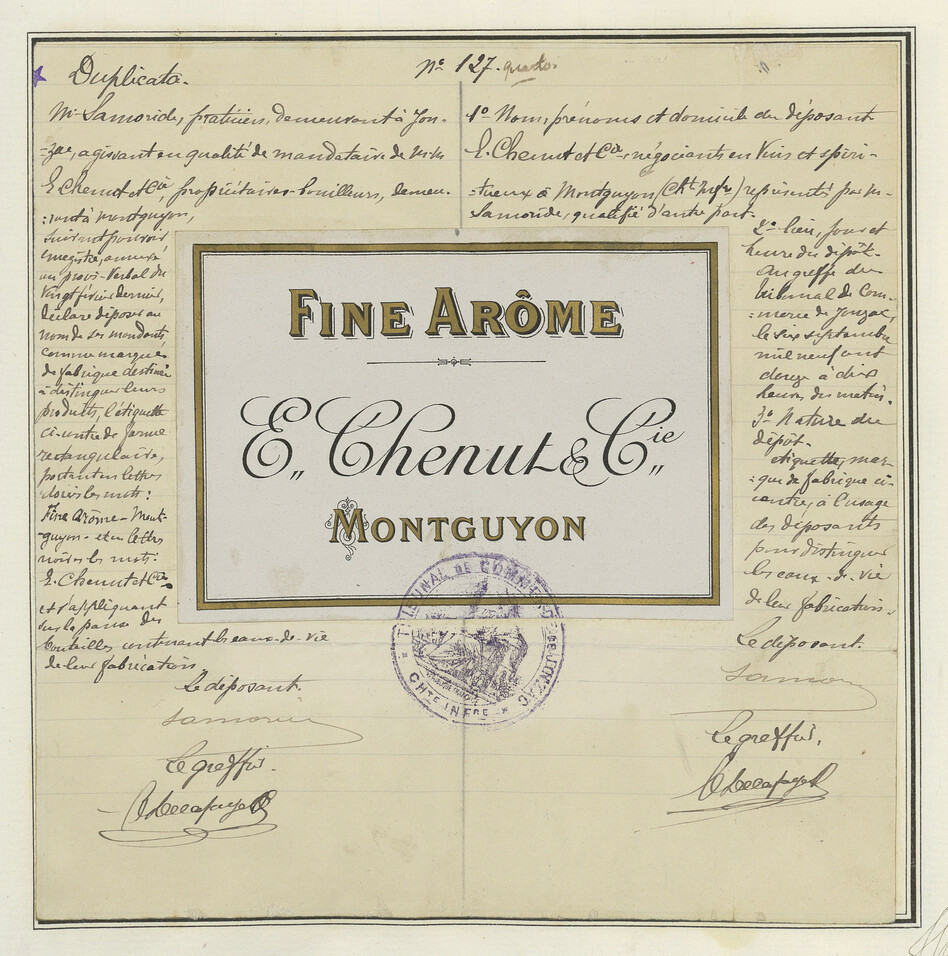 Duplicata.
Mr Samoride, praticien, demeurant à Jon-
-zac, agissant en qualité de mandataire de
E. Chenut et Cie, propriétaires-bouilleurs, demeu-
:rant à Montguyon,
suivant pouvoir
enregistré, annexé
au procès-Verbal du
Vingt février dernier,
déclare déposer au
nom de ses mandants,
comme marque
de fabrique destinée
à distinguer leurs
produits, l'étiquette
ci-contre de forme
rectangulaire,
portant en lettres
dorées les mots:
Fine Arôme - Mont-
guyon - et en lettres
noires les mots:
E. Chenut et Cie
et s'appliquant
sur la panse des
bouteilles contenant les eaux-de-vie
de leur fabrication.
Le déposant.
Le greffier.
No 127. quarto.
1o Nom, prénoms et domicile du déposant
E. Chenut et Cie, négociants en Vins et spiri-
:tueux à Montguyon (Chte Infre) représentés par Mr
Samoride, qualifié d'autre part.
2o lieu, jour et
heure du dépôt.
Au greffe du
tribunal de Com-
:merce de Jonzac,
le six septembre
mil neuf cent
douze à dix
heures du matin.
3o Nature du
dépôt.
étiquette, mar-
:que de fabrique ci-
contre, à l'usage
des déposants
pour distinguer
les eaux-de-vie
de leur fabrication.
Le déposant.
Le greffier.
FINE ARÔME
E. Chenut & Cie
MONTGUYON
TRIBUNAL DE COMMERCE DE JONZAC
CHTE INFRE